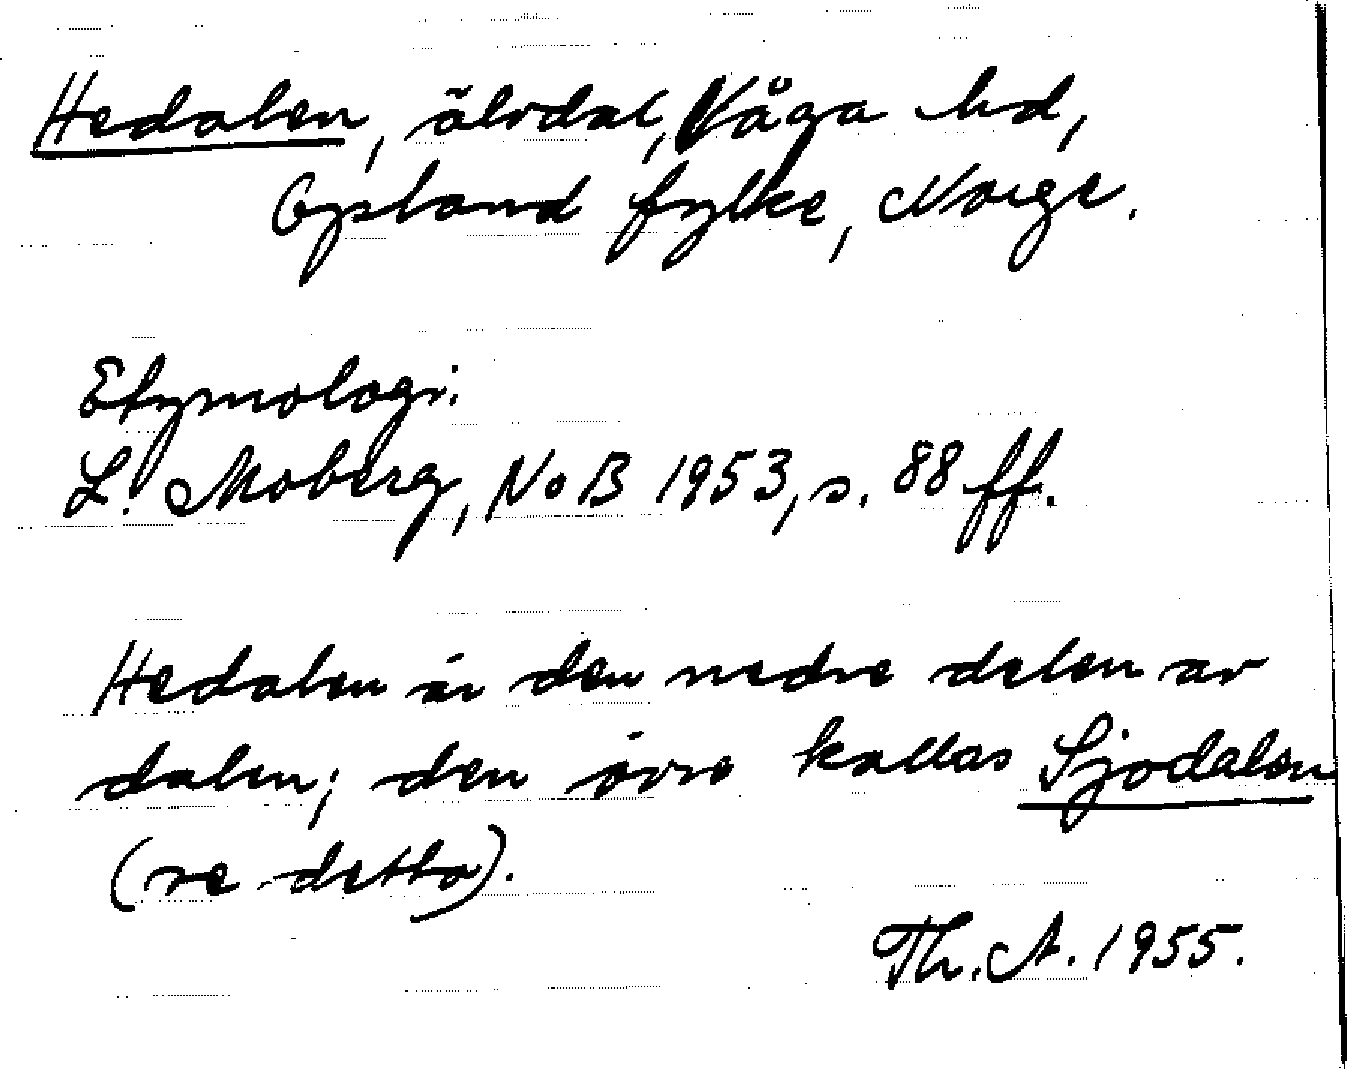 Hedalen, älvdal, Våga hd,
Opland fylke, Norge.
Etymologi.
L. Moberg, NoB 1953, s. 88 ff.
Hedalen är den nedre delen av
dalen; den övre kallas Sjodalen
(se detta).
Th. A. 1955.